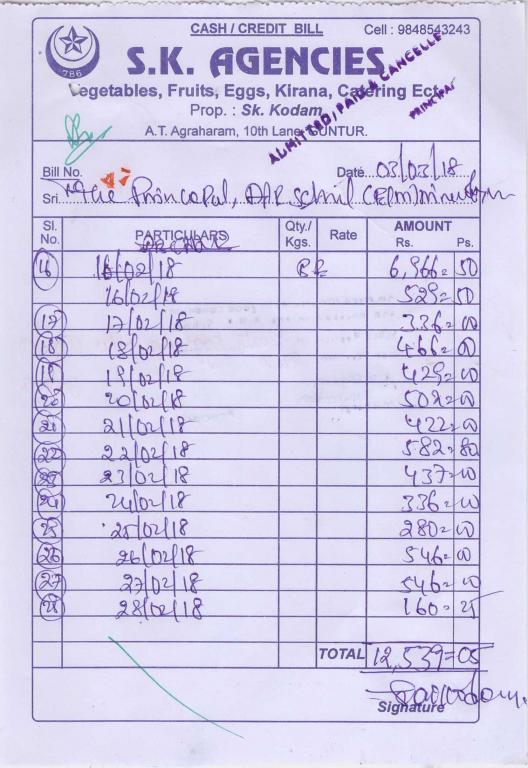 CASH / CREDIT BILL Cell : 9848543243
786
S.K. AGENCIES
Vegetables, Fruits, Eggs, Kirana, Catering Ect.,
Prop. : Sk. Kodam
A.T. Agraharam, 10th Lane, GUNTUR.
ADMITTED/PAID & CANCELLE
PRINCIPAL
Bill No. Date 03/03/18
Sri The Principal,
Sl. No. PARTICULARS Qty./ Kgs. Rate AMOUNT Rs. Ps.
16 16/02/18 6,966=50
16/02/18 529=50
17 17/02/18 336=00
18 18/02/18 466=00
19 19/02/18 429=00
20 20/02/18 502=00
21 21/02/18 422=00
22 22/02/18 582=80
23 23/02/18 437=00
24 24/02/18 336=00
25 25/02/18 280=00
26 26/02/18 546=00
27 27/02/18 546=00
28 28/02/18 160=25
TOTAL 12,539=05
Signature